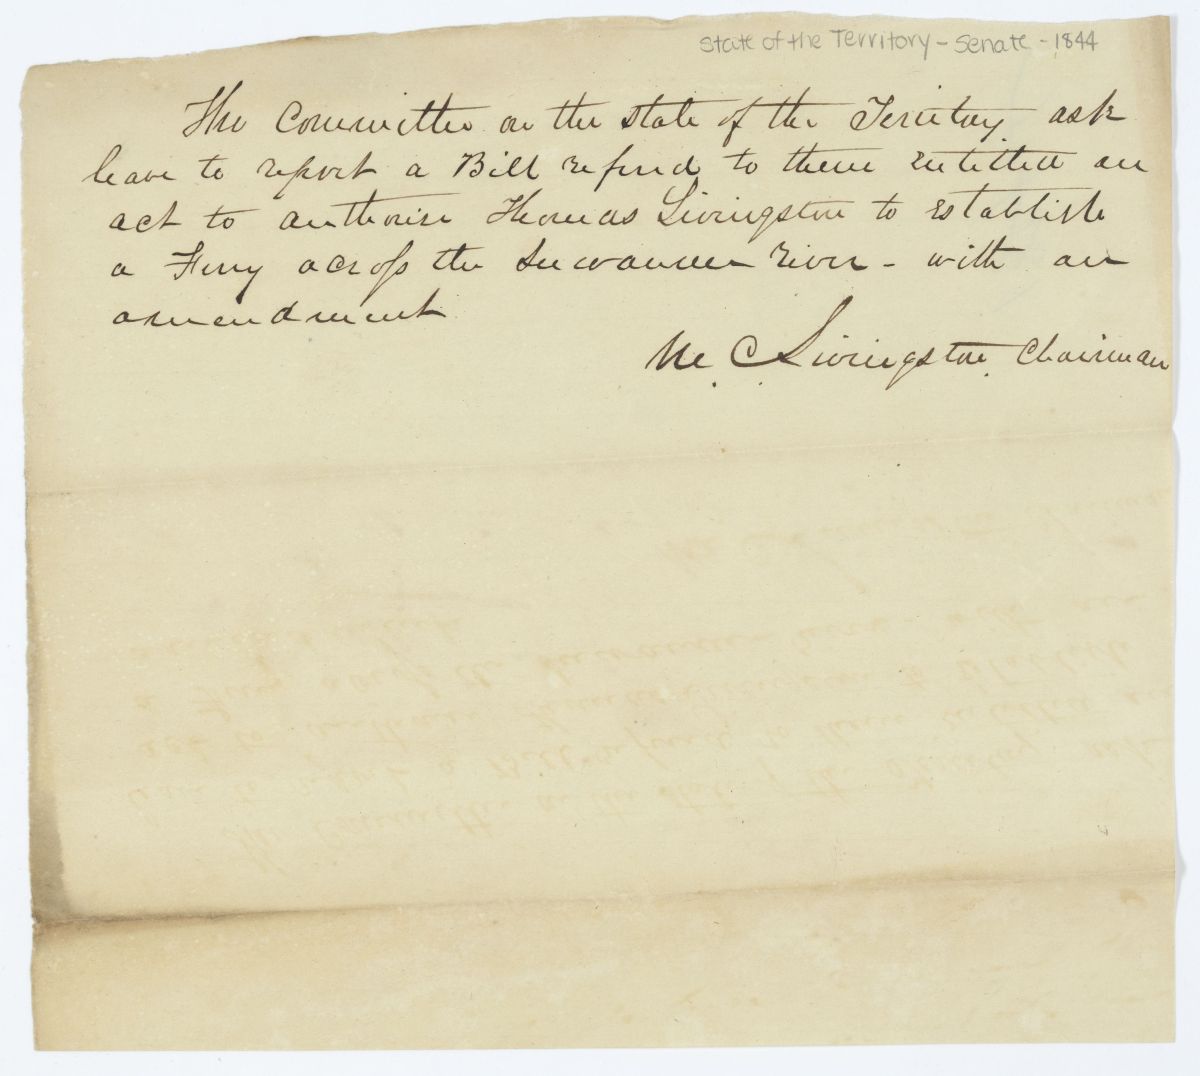 State of the Territory - Senate - 1844
The Committee on the state of the Territory ask
leave to report a Bill referd to them entitled an
act to authorise Thomas Livingston to establish
a Ferry across the Suwannee River - with an
amendment
M. C. Livingston Chairman